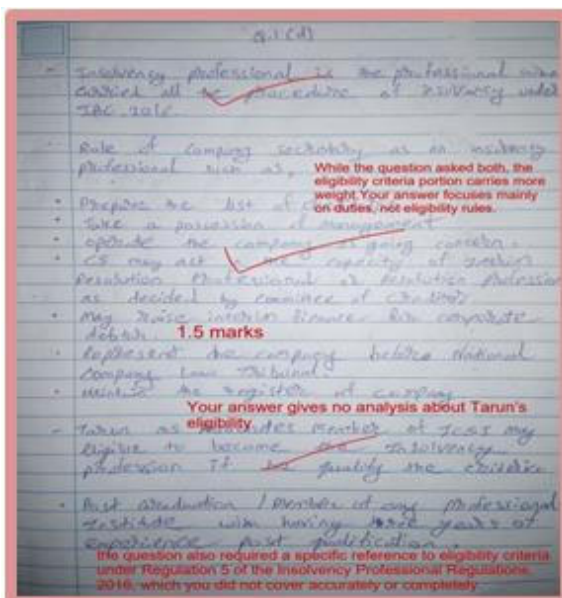 Q.1 (d)
- Insolvency professional is the professional who
carried all the procedure of insolvency under
IBC, 2016.
- Role of company secretary as an insolvency
professional such as,
While the question asked both, the
eligibility criteria portion carries more
weight.Your answer focuses mainly
on duties, not eligibility rules.
• Prepare the list of
• Take a possession of management
• operate the company a going concern.
• CS may act in the capacity of
Resolution Professional or Resolution Profession
as decided by committee of creditors
• may raise interim finance for corporate
debtor.
1.5 marks
• Represent the company before National
Company Law Tribunal.
• the register of company
Your answer gives no analysis about Tarun's
eligibility
- Tarun as member of ICSI may
eligible to become the Insolvency
profession If he qualify the criteria
• Post graduation / member of any professional
institute with having years of
experience post
the question also required a specific reference to eligibility criteria
under Regulation 5 of the Insolvency Professional Regulations,
2016, which you did not cover accurately or completely